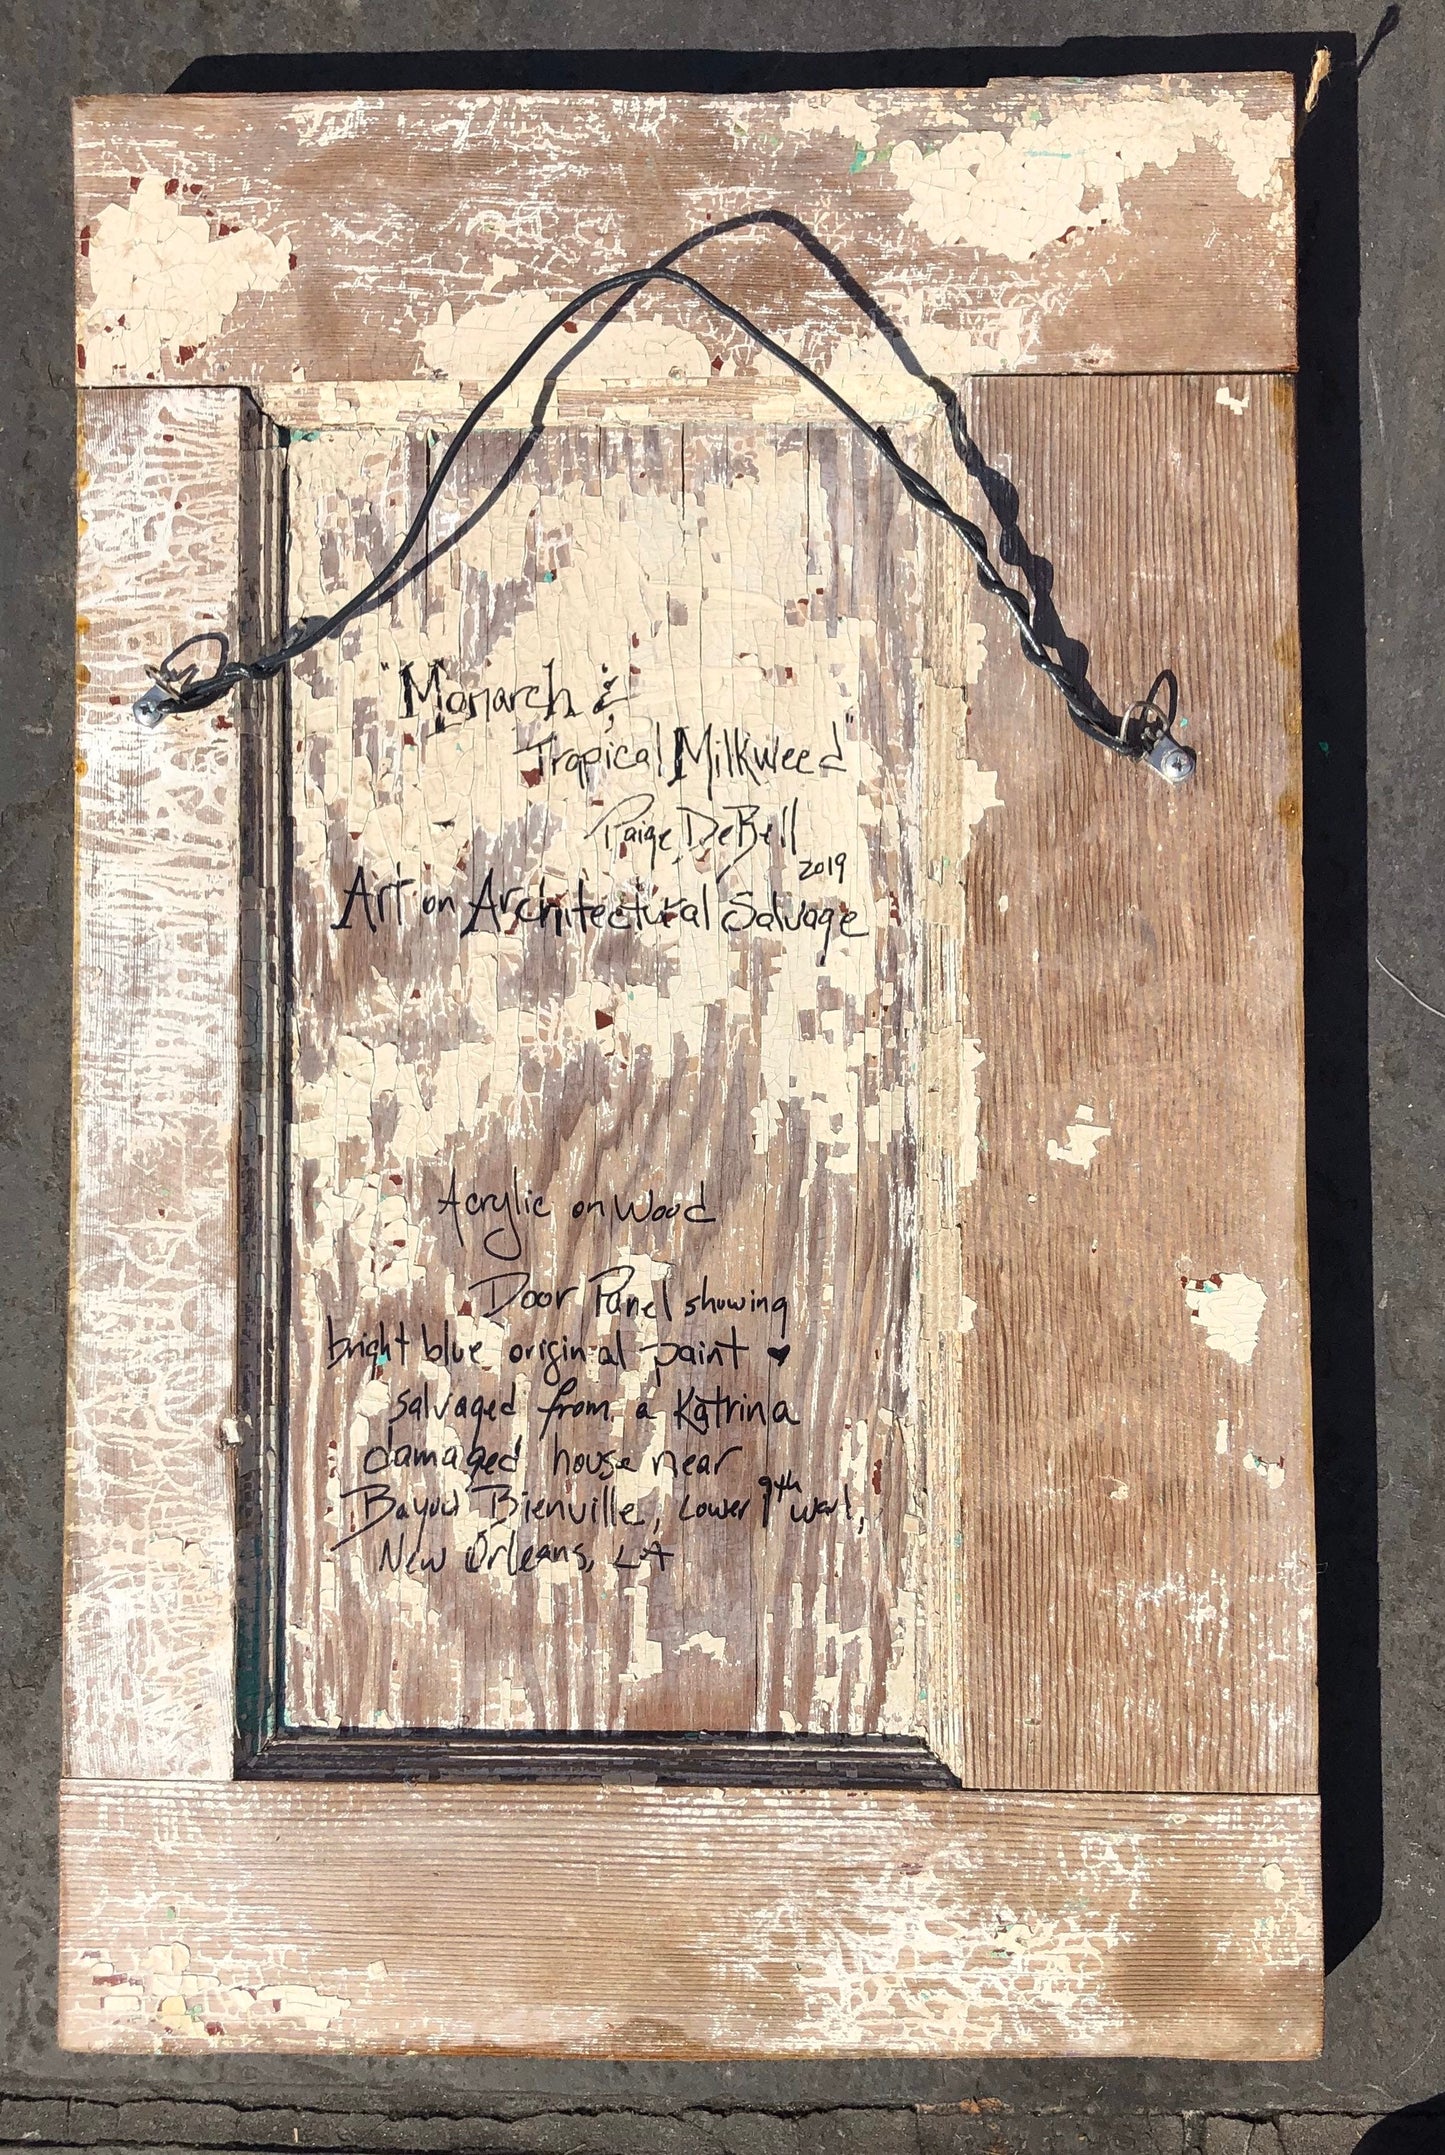 "Monarch &
Tropical Milkweed"
Paige DeBell
2019
Art on Architectural Salvage
Acrylic on Wood
Door Panel showing
bright blue original paint ♥
salvaged from a Katrina
damaged house near
Bayou Bienville, Lower 9th Ward,
New Orleans, LA